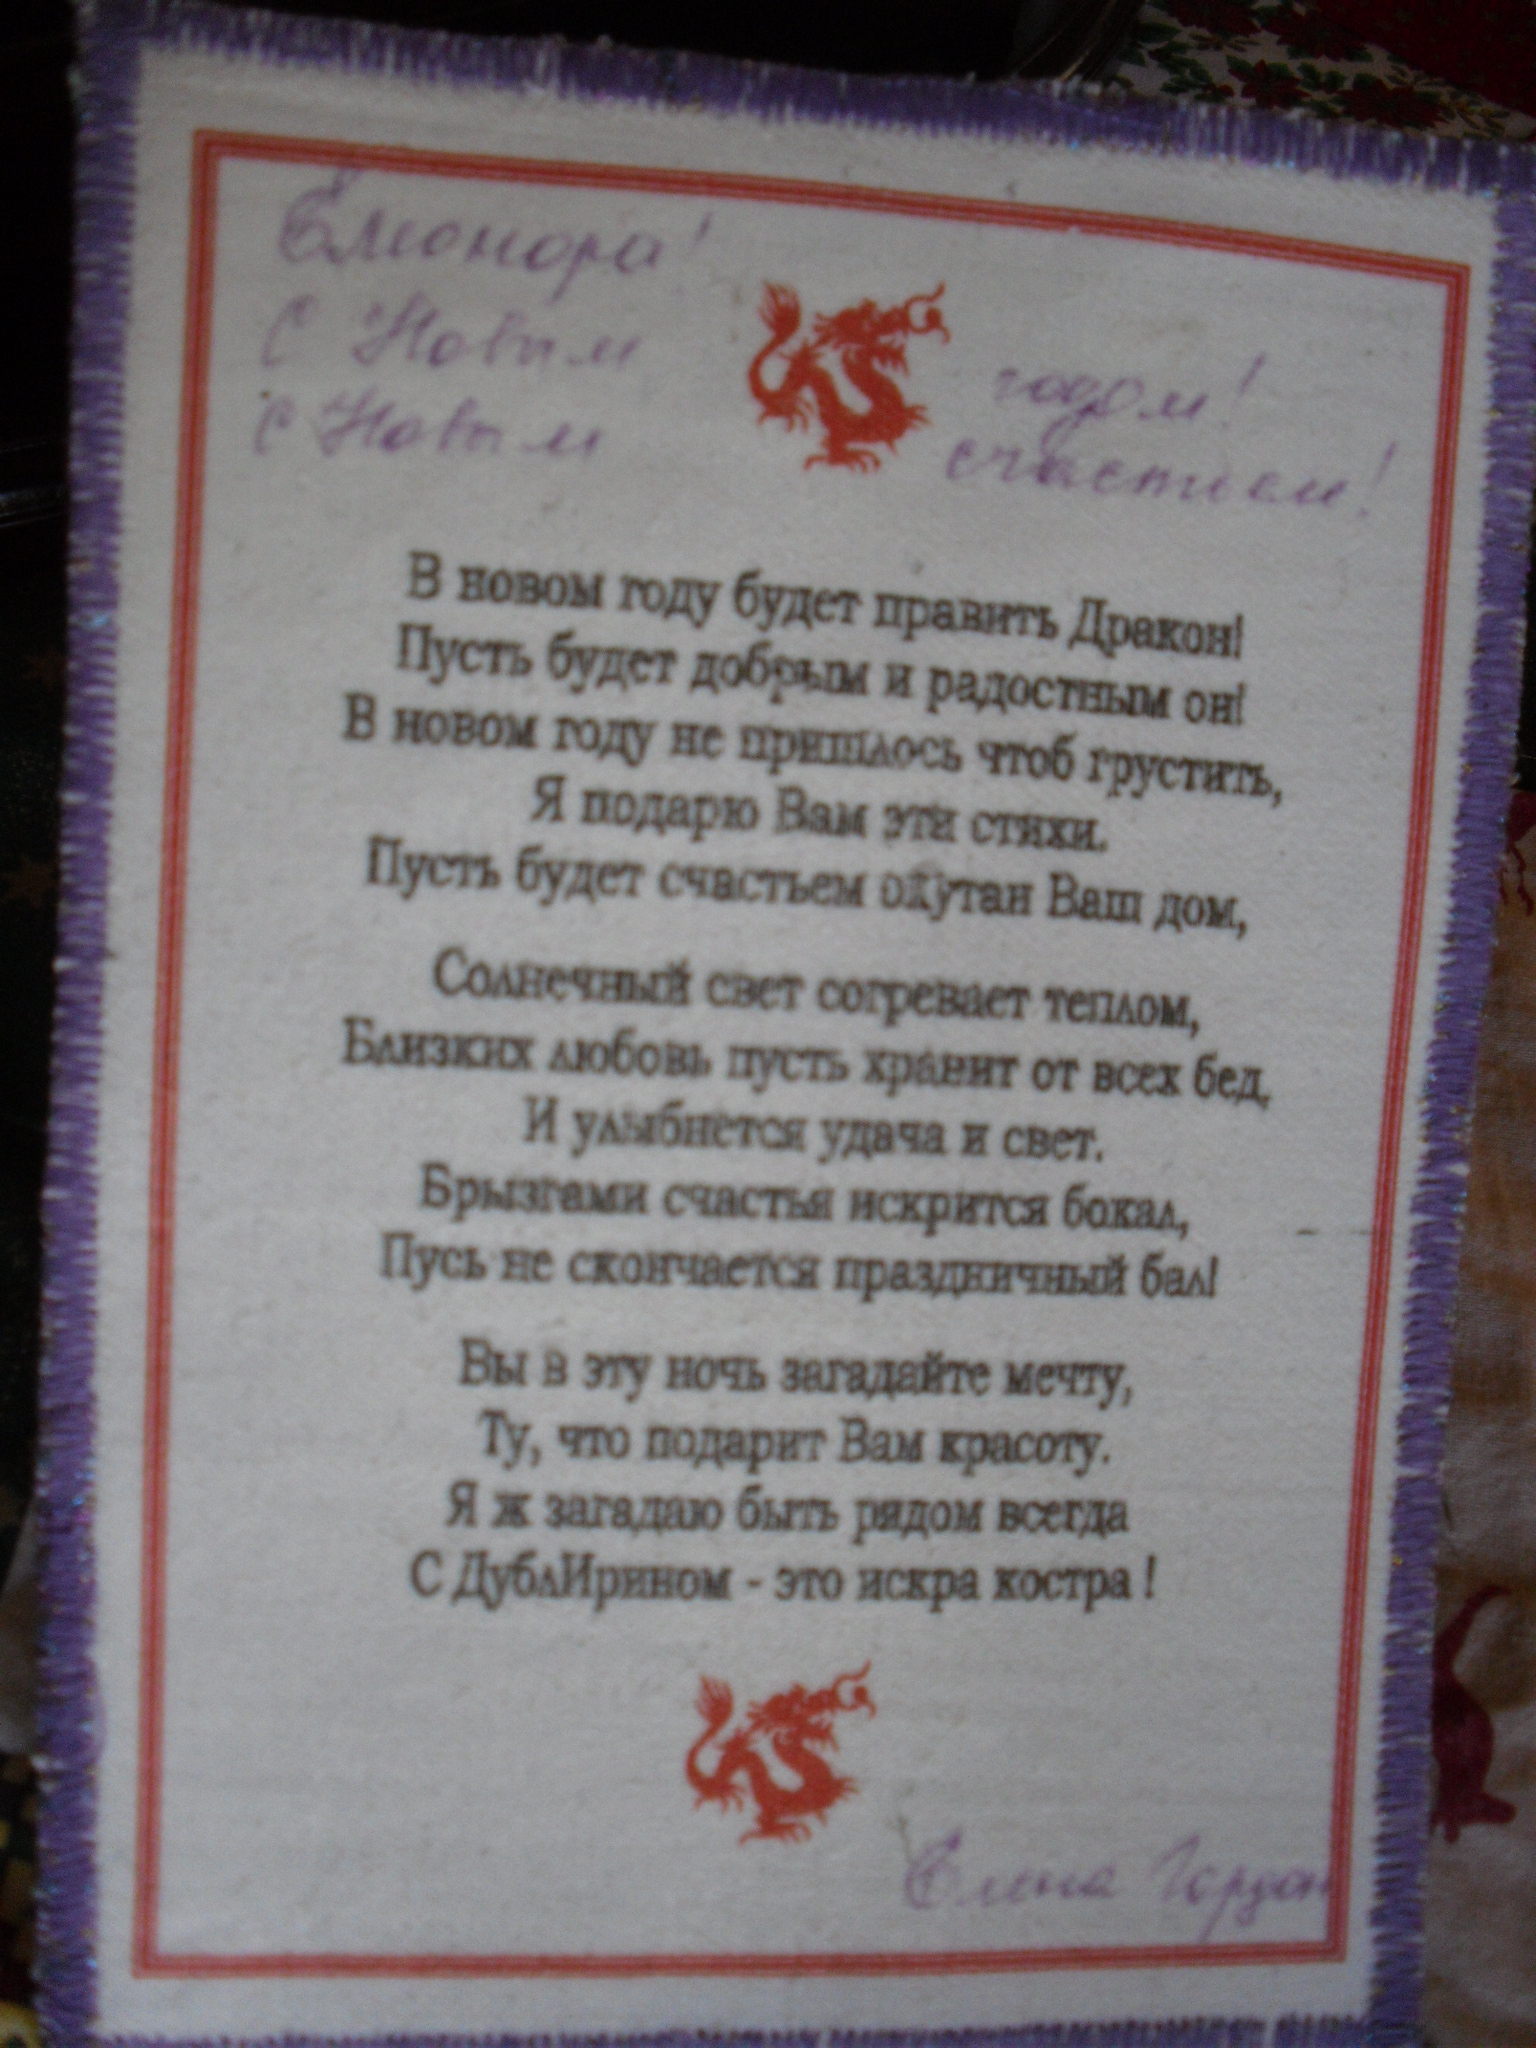 Елеонора!
С Новым годом!
С Новым счастьем!
В новом году будет править Дракон!
Пусть будет добрым и радостным он!
В новом году не пришлось чтоб грустить,
Я подарю Вам эти стихи.
Пусть будет счастьем окутан Ваш дом,
Солнечный свет согревает теплом,
Близких любовь пусть хранит от всех бед,
И улыбнется удача и свет.
Брызгами счастья искрится бокал,
Пусь не скончается праздничный бал!
Вы в эту ночь загадайте мечту,
Ту, что подарит Вам красоту.
Я ж загадаю быть рядом всегда
С ДублИрином - это искра костра !
Елена Гордон